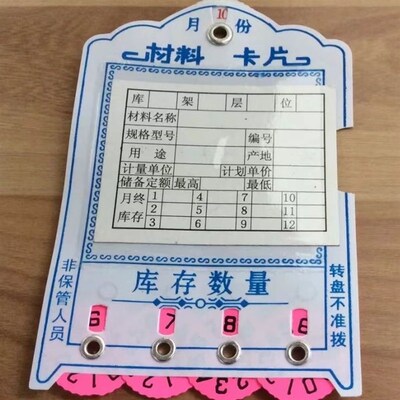 月 10 份
材料 卡片
库 架 层 位
材料名称
规格型号 编号
用途 产地
计量单位 计划单价
储备定额 最高 最低
月终 1 4 7 10
库存 2 5 8 11
3 6 9 12
库存数量
非保管人员
转盘不准拨
6 7 8 8